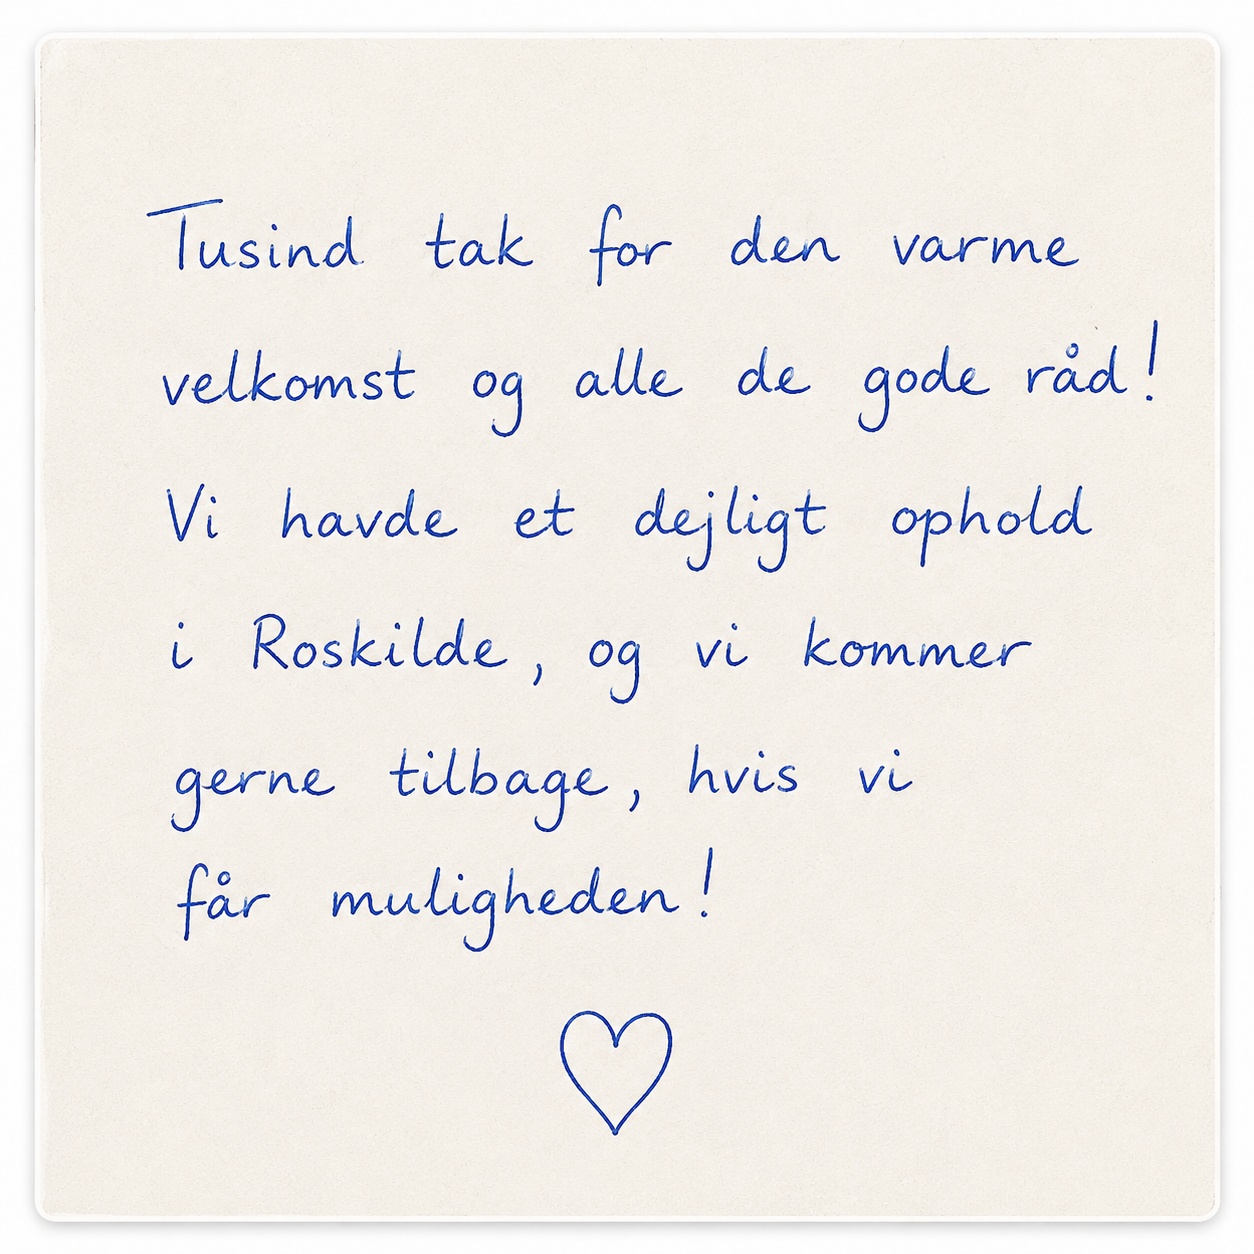 Tusind tak for den varme
velkomst og alle de gode råd!
Vi havde et dejligt ophold
i Roskilde, og vi kommer
gerne tilbage, hvis vi
får muligheden!